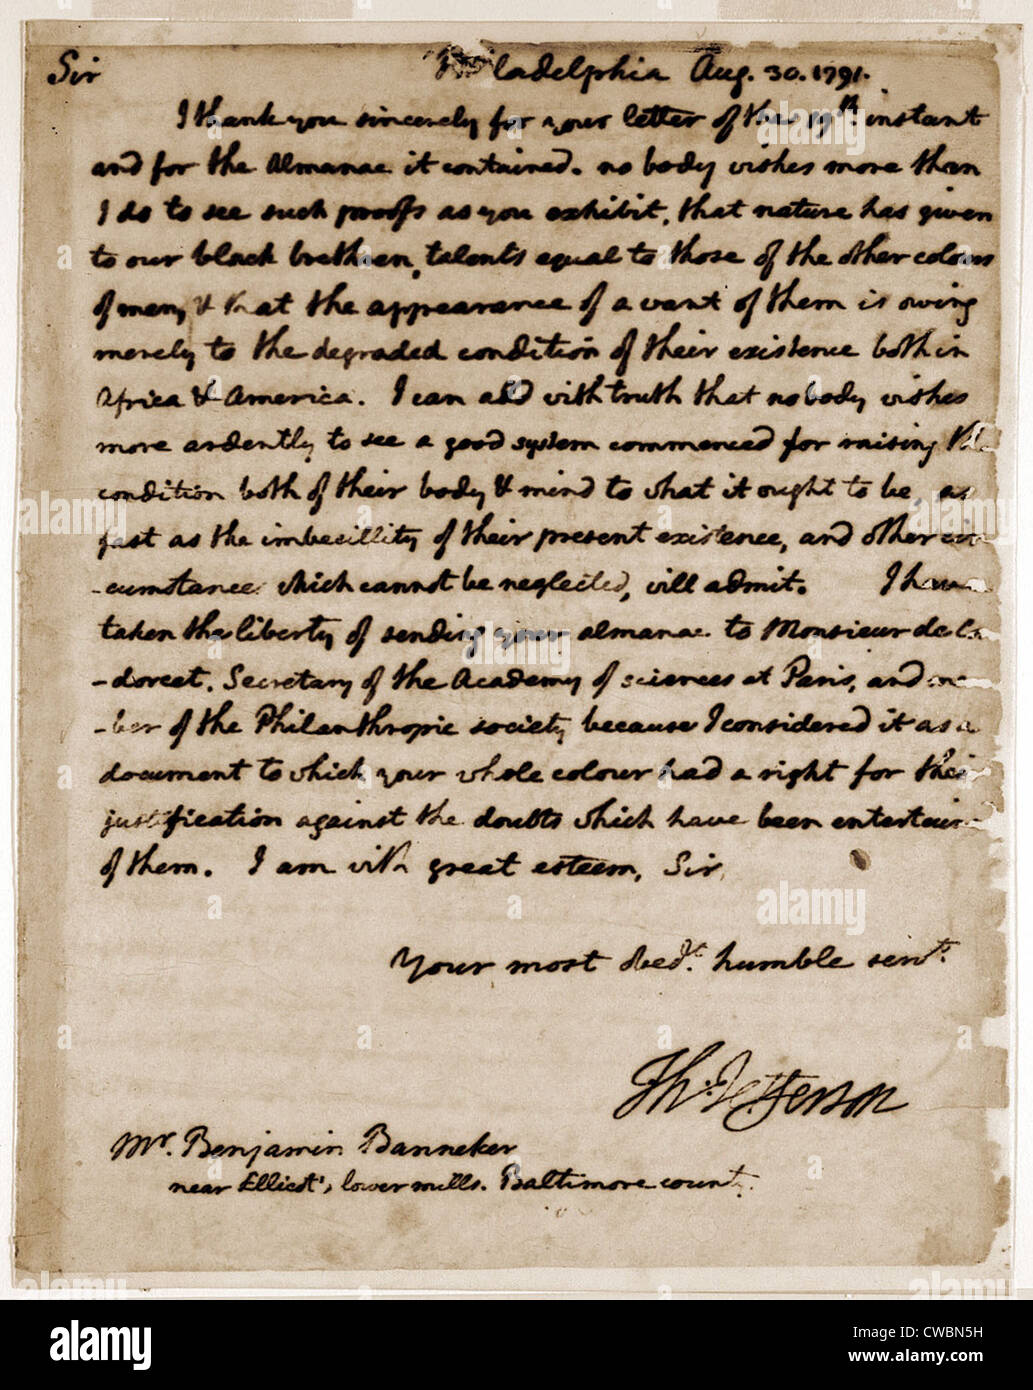 Sir Philadelphia Aug. 30. 1791.
I thank you sincerely for your letter of the 19th. instant
and for the Almanac it contained. no body wishes more than
I do to see such proofs as you exhibit, that nature has given
to our black brethren, talents equal to those of the other colours
of men, & that the appearance of a want of them is owing
merely to the degraded condition of their existence both in
Africa & America. I can add with truth that no body wishes
more ardently to see a good system commenced for raising the
condition both of their body & mind to what it ought to be, as
fast as the imbecillity of their present existence, and other cir
-cumstance which cannot be neglected, will admit. I have
taken the liberty of sending your almanac to Monsieur de
-dorcet, Secretary of the Academy of sciences at Paris, and
-ber of the Philanthropic society because I considered it as a
document to which your whole colour had a right for their
justification against the doubts which have been entertain
of them. I am with great esteem, Sir,
Your most obedt. humble servt.
Th. Jefferson
Mr. Benjamin Banneker
near Ellicot's, lower mills. Baltimore county.
alamy
Image ID: CWBN5H
www.alamy.com